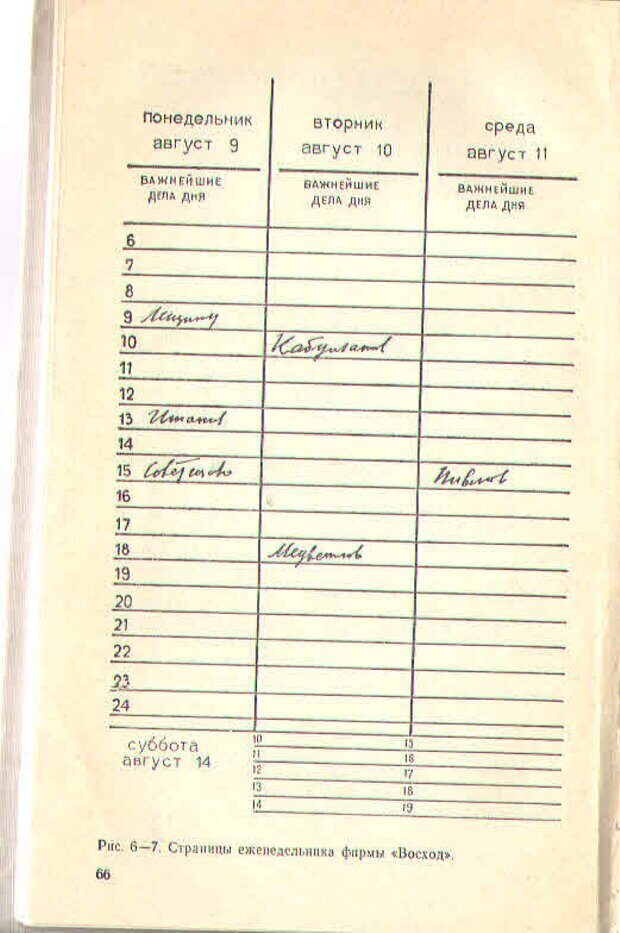 понедельник
август 9
ВАЖНЕЙШИЕ
ДЕЛА ДНЯ
вторник
август 10
ВАЖНЕЙШИЕ
ДЕЛА ДНЯ
среда
август 11
ВАЖНЕЙШИЕ
ДЕЛА ДНЯ
6
7
8
9
10
11
12
13
14
15
16
17
18
19
20
21
22
23
24
суббота
август 14
10 15
11 16
12 17
13 18
14 19
Рис. 6—7. Страницы еженедельника фирмы «Восход».
66